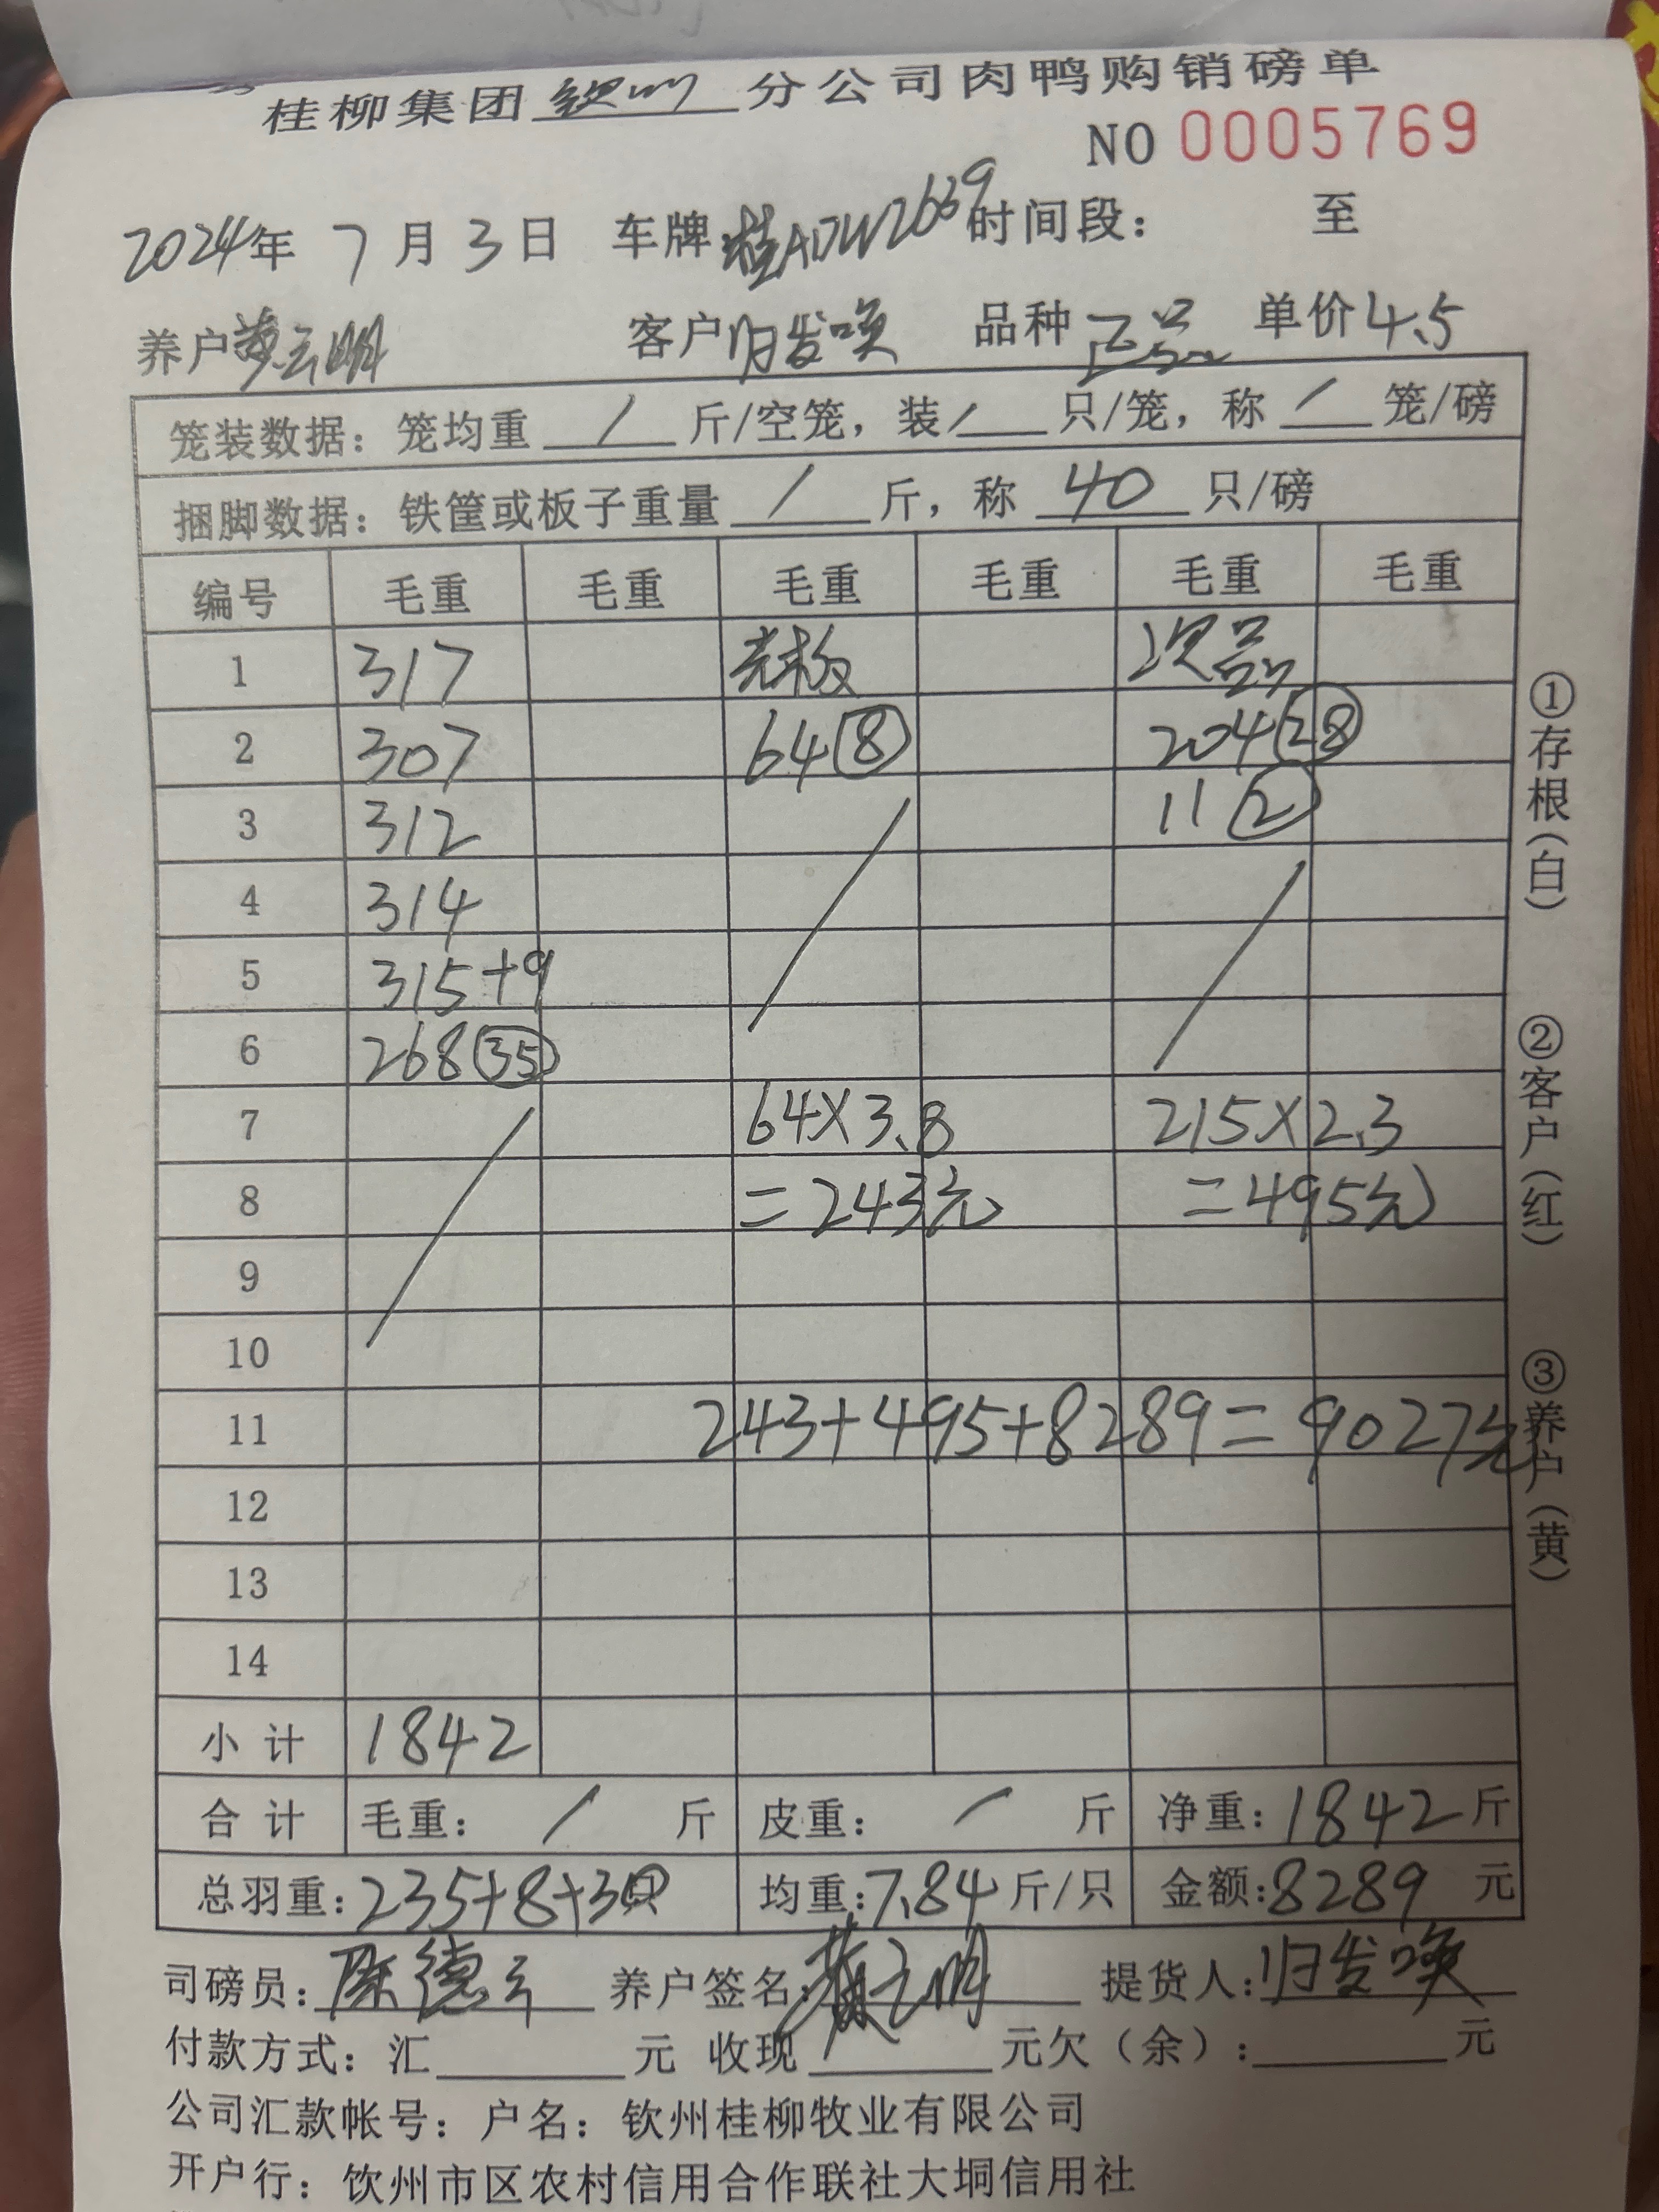 桂柳集团钦州分公司肉鸭购销磅单
NO 0005769
2024年 7月3日 车牌:桂A07W2639 时间段: 至
养户黄云明 客户归发唤 品种正品 单价4.5
笼装数据: 笼均重 / 斤/空笼, 装 / 只/笼, 称 / 笼/磅
捆脚数据: 铁筐或板子重量 / 斤, 称 40 只/磅
编号 毛重 毛重 毛重 毛重 毛重 毛重
1 317 光板 次品
2 307 64⑧ 204㉘
3 312 11②
4 314
5 315+9
6 268㉟
7 64×3.8 215×2.3
8 =243元 =495元
9
10
11 243+495+8289=9027元
12
13
14
小计 1842
合计 毛重: / 斤 皮重: / 斤 净重:1842斤
总羽重:235+8+30只 均重:7.84斤/只 金额:8289 元
司磅员:陈德云 养户签名:黄云明 提货人:归发唤
付款方式: 汇 元 收现 元欠(余): 元
公司汇款帐号: 户名: 钦州桂柳牧业有限公司
开户行: 钦州市区农村信用合作联社大垌信用社
①存根(白) ②客户(红) ③养户(黄)